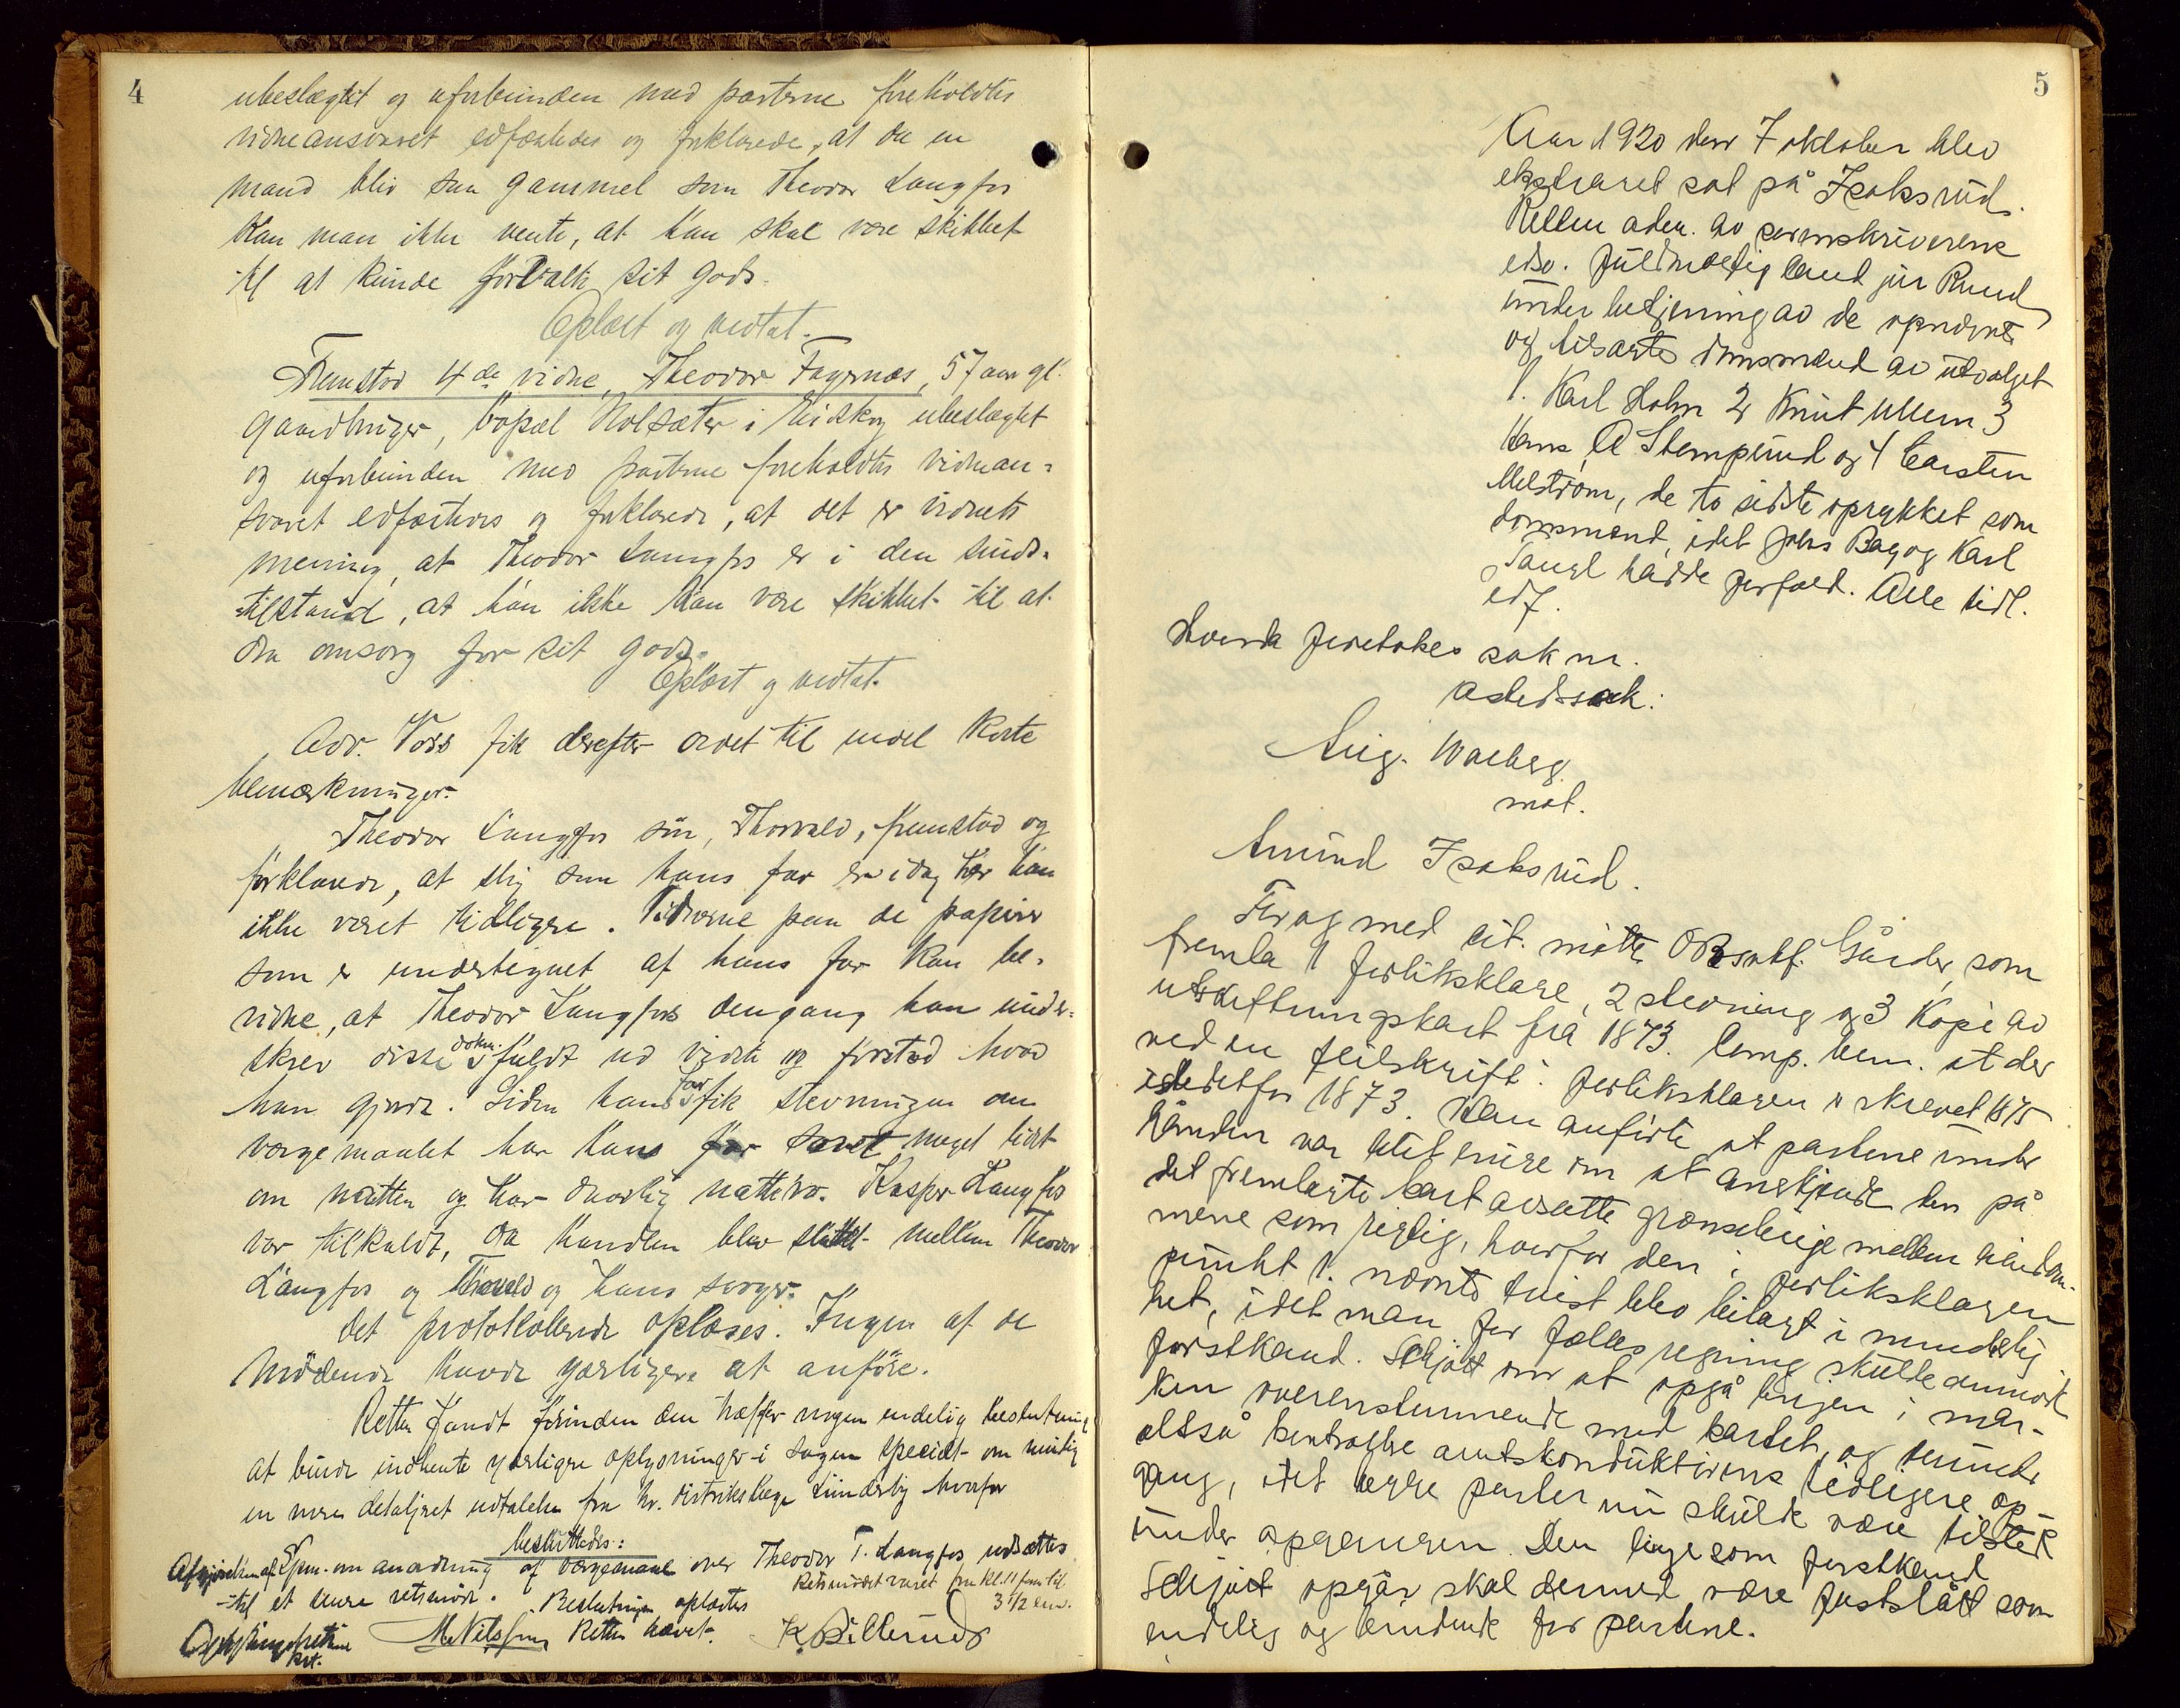 4
ubeslægtet og uforbunden med parterne foreholdtes
vidneansvaret edfæstedes og forklarede, at da en
mand blir saa gammel som Theodor Langfos
kan man ikke vente, at han skal være skikket
til at kunde forvalte sit gods.
Oplæst og vedtat.
Fremstod 4de vidne, Theodor Fagernæs, 57 aar gl.
gaardbruger, bopæl Holsæter i Eidskog ubeslægtet
og uforbunden med parterne foreholdtes vidnean-
svaret edfæstedes og forklarede, at det er vidnets
mening, at Theodor Langfos er i den sinds-
tilstand, at han ikke kan være skikket til at
dra omsorg for sit gods.
Oplæst og vedtat.
Adv. Voss fik derefter ordet til endel korte
bemerkninger.
Theodor Langfos søn, Thorvald, fremstod og
forklarede, at slig som hans far er idag har han
ikke været tidligere. Vidnerne paa de papirer
som er undertegnet af hans far kan be-
vidne, at Theodor Langfos dengang han under-
skrev disse dokm. fuldt ud vidste og forstod hvad
han gjorde. Siden hans far fik stevningen om
vergemaalet har hans far sovet meget lidt
om natten og har daarlig nattero. Kasper Langfos
var tilkaldt, da handlen blev sluttet mellem Theodor
Langfos og Thorvald og hans svoger.
Det protokollerede oplæses. Ingen af de
mødende havde yderligere at anføre.
Retten fandt forinden den træffer nogen endelig beslutning
at burde indhente yderligere oplysninger i sagen specielt om mulig
en mere detaljeret udtalelse fra hr. distriktslæge Lunderby hvorfor
besluttedes:
Afgjørelsen af Spm. om anordning af vergemaal over Theodor T. Langfos udsættes
til et senere retsmøde. Beslutningen oplæstes
Retsmødet varet fra kl. 11 fm til
3 1/2 em.
M Nilssen Retten hævet. K. Billerud
5
Aar 1920 den 7 oktober blev
ekstraret sat på Isaksrud.
Retten adm. av sorenskriverens
edsv. fuldmægtig cand jur Ruud
under betjening av de opnævnte
og tilsagte domsmænd av utvalget
1. Karl Holm 2 Knut Ullern 3
Hans A Stemprud og 4 Carsten
Melstrøm, de to sidste oprykket som
domsmænd, idet Johs Bag og Karl
hadde forfald. Alle tidl.
edf.
Hvorda foretokes sak nr.
åstedssak:
Aug. Warberg
mot.
Amund Isaksrud.
For og med cit. møtte ORsakf. Gårder, som
fremla 1 forliksklage, 2 stevning og 3 kopi av
utskiftningskart fra 1873. Comp. bem. at der
ved en feilskrift i forliksklagen er skrevet 1875
istedetfor 1873. Han anførte at partene under
hånden var blit enige om at anerkjende den på
det fremlagte kart avsatte grænselinje mellem eiendom-
mene som rigtig, hvorfor den i forliksklagen
punkt 1. nævnte tvist blev bilagt i mindelig-
het, idet man for fælles regning skulde anmode
forstkand. Schjøtt om at opgå linjen i mar-
ken overensstemmende med kartet, og denne
altså kontrollere amtskonduktørens tidligere op-
gang, idet begge parter nu skulde være tilstede
under opgangen. Den linje som forstkand
Schjøtt opgår skal dermed være fastslått som
endelig og bindende for partene.